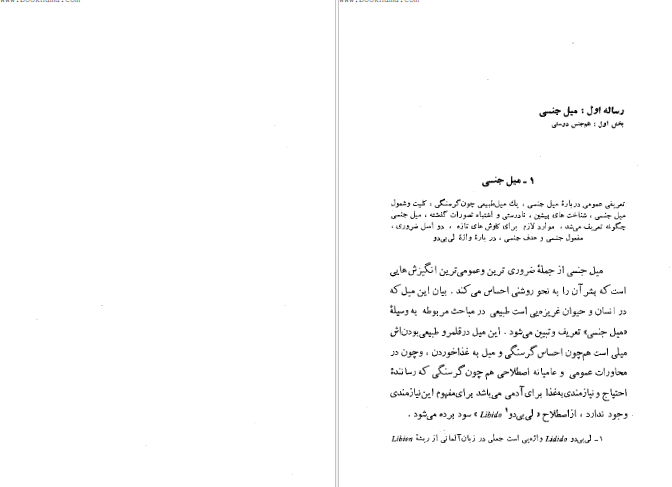 رساله اول : میل جنسی
بخش اول : هم‌جنس دوستی
۱ ـ میل جنسی
تعریفی عمومی دربارهٔ میل جنسی ، یك میل‌طبیعی چون‌گرسنگی ، کلیت وشمول
میل جنسی ، شناخت های پیشین ، نادرستی و اشتباه تصورات گذشته ، میل جنسی
چگونه تعریف می‌شد ، موارد لازم برای کاوش های تازه ، دو اصل ضروری ،
مفعول جنسی و هدف جنسی ، دربارهٔ واژهٔ لی‌بی‌دو
میل جنسی از جملهٔ ضروری ترین وعمومی‌ترین انگیزش‌هایی
است که بشر آن را به نحو روشنی احساس می‌کند . بیان این میل که
در انسان و حیوان غریزه‌یی است طبیعی در مباحث مربوطه به وسیلهٔ
«میل جنسی» تعریف و تبیین می‌شود . این میل درقلمرو طبیعی‌بودن‌اش
میلی است هم‌چون احساس گرسنگی و میل به غذاخوردن ، وچون در
محاورات عمومی و عامیانه اصطلاحی هم چون گرسنگی که رسانندهٔ
احتیاج و نیازمندی‌به‌غذا برای آدمی می‌باشد برای‌مفهوم این‌نیازمندی
وجود ندارد ، ازاصطلاح « لی‌بی‌دو۱ Libido » سود برده می‌شود .
۱ـ لی‌بی‌دو Lidido واژه‌یی است جعلی در زبان‌آلمانی از ریشهٔ Libion